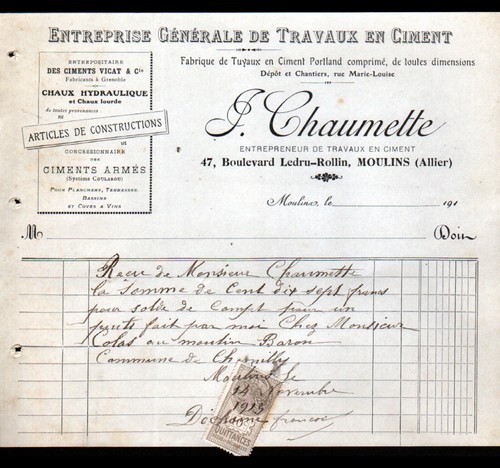 ENTREPRISE GÉNÉRALE DE TRAVAUX EN CIMENT
ENTREPOSITAIRE
DES CIMENTS VICAT & Cie
Fabricants à Grenoble
CHAUX HYDRAULIQUE
et Chaux lourde
de toutes provenances
ARTICLES DE CONSTRUCTIONS
CONCESSIONNAIRE
DES
CIMENTS ARMÉS
(Système COULAROU)
POUR PLANCHERS, TERRASSES,
BASSINS
ET CUVES A VINS
Fabrique de Tuyaux en Ciment Portland comprimé, de toutes dimensions
Dépôt et Chantiers, rue Marie-Louise
J. Chaumette
ENTREPRENEUR DE TRAVAUX EN CIMENT
47, Boulevard Ledru-Rollin, MOULINS (Allier)
Moulins, le 191
M Doit
Recu de Monsieur Chaumette
la Somme de Cent dix sept francs
pour solde de Compt pour un
puits fait par moi Chez Monsieur
Colas au moulin Baron
Commune de
Moulins le
14 Novembre
1913
francois
QUITTANCES